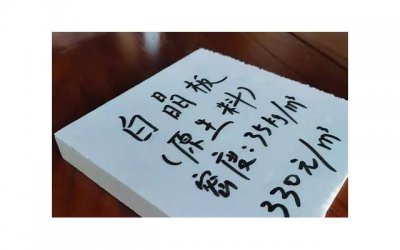 白晶板
(原生料)
密度:35kg/m³
330元/m³